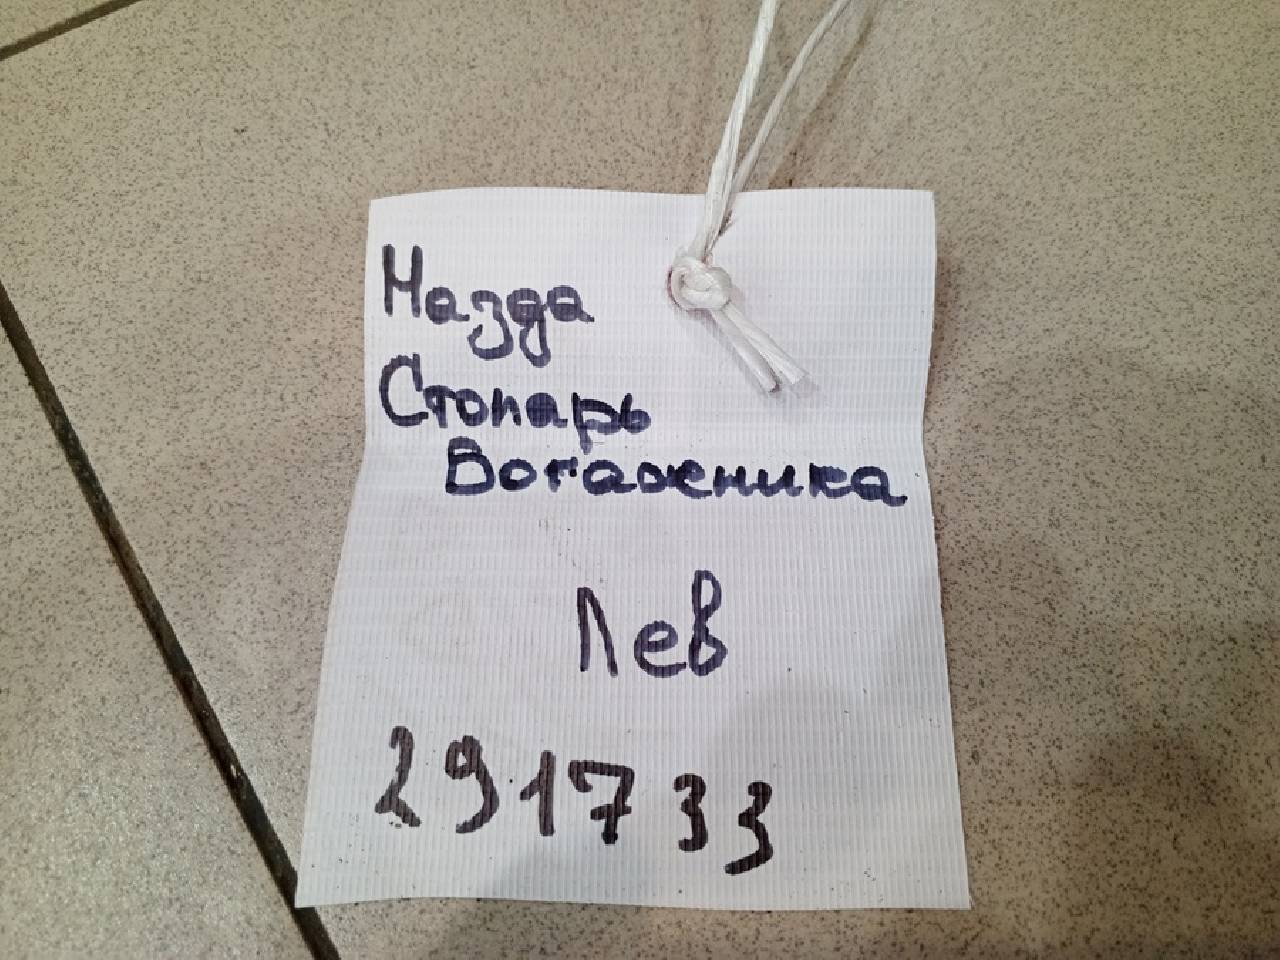 Мазда
Стопарь
Вогажника
Лев
291733